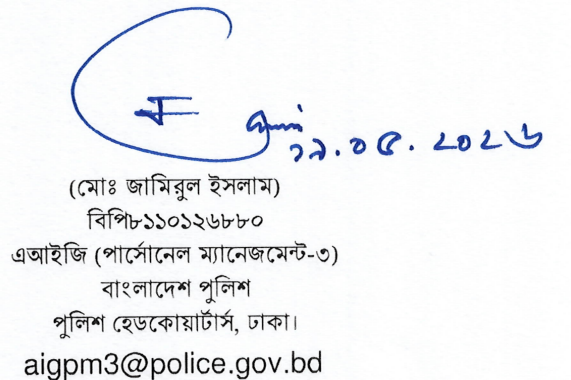 ১৯.০৫.২০২৬
(মোঃ জামিরুল ইসলাম)
বিপি৮১১০১২৬৮৮০
এআইজি (পার্সোনেল ম্যানেজমেন্ট-৩)
বাংলাদেশ পুলিশ
পুলিশ হেডকোয়ার্টার্স, ঢাকা।
aigpm3@police.gov.bd